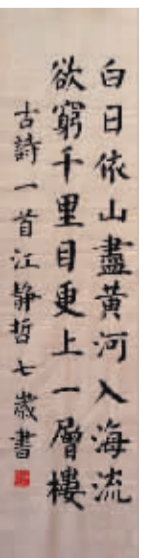 白日依山盡黃河入海流
欲窮千里目更上一層樓
古詩一首江靜哲七歲書